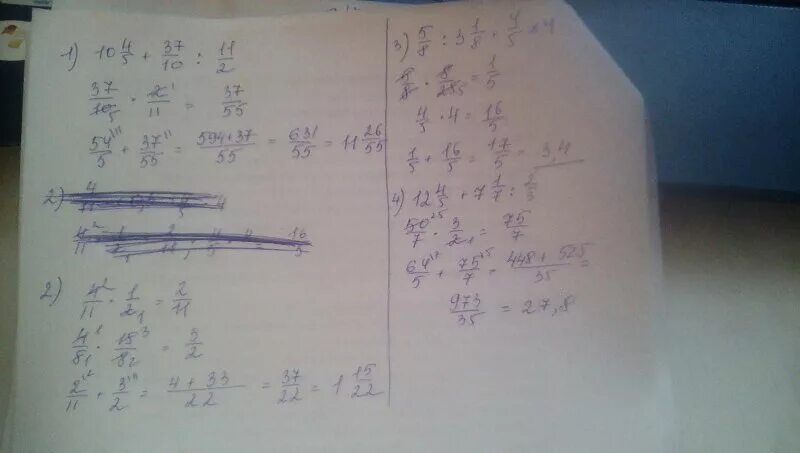 1) 10 4/5 + 37/10 : 11/2
37/10 5 · 2 1/11 = 37/55
54 11/5 + 37 11/55 = 594+37/55 = 631/55 = 11 26/55
2)
2) 4 2/11 · 1/2 1 = 2/11
4 1/8 1 · 15 3/8 2 = 3/2
2 12/11 + 3 11/2 = 4+33/22 = 37/22 = 1 15/22
3) 5/8 : 3 1/8 + 4/5 · 4
5/8 · 8/25 5 = 1/5
4/5 · 4 = 16/5
1/5 + 16/5 = 17/5 = 3,4
4) 12 4/5 + 7 1/7 : 2/3
50 25/7 · 3/2 1 = 75/7
64/5 + 75/7 = 448+525/35 =
973/35 = 27,8